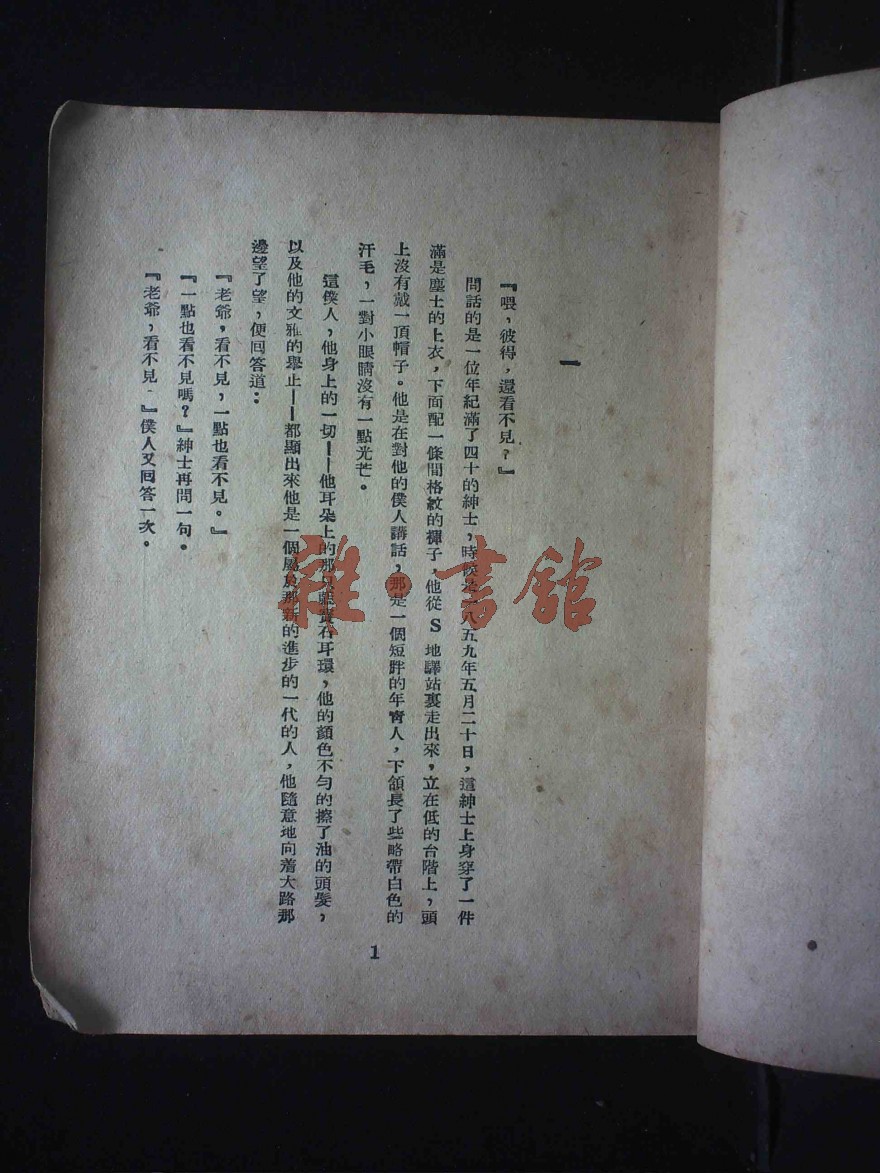 一
『喂，彼得，還看不見？』
問話的是一位年紀滿了四十的紳士，時候是一八五九年五月二十日，這紳士上身穿了一件
滿是塵土的上衣，下面配一條間格紋的褲子，他從 S 地驛站裏走出來，立在低的台階上，頭
上沒有戴一頂帽子。他是在對他的僕人講話，那是一個短胖的年靑人，下頷長了些略帶白色的
汗毛，一對小眼睛沒有一點光芒。
這僕人，他身上的一切——他耳朵上的那只藍寶石耳環，他的顏色不勻的擦了油的頭髮，
以及他的文雅的舉止——都顯出來他是一個屬於那新的進步的一代的人，他隨意地向着大路那
邊望了望，便回答道：
『老爺，看不見，一點也看不見。』
『一點也看不見嗎？』紳士再問一句。
『老爺，看不見。』僕人又回答一次。
1
雜·書館